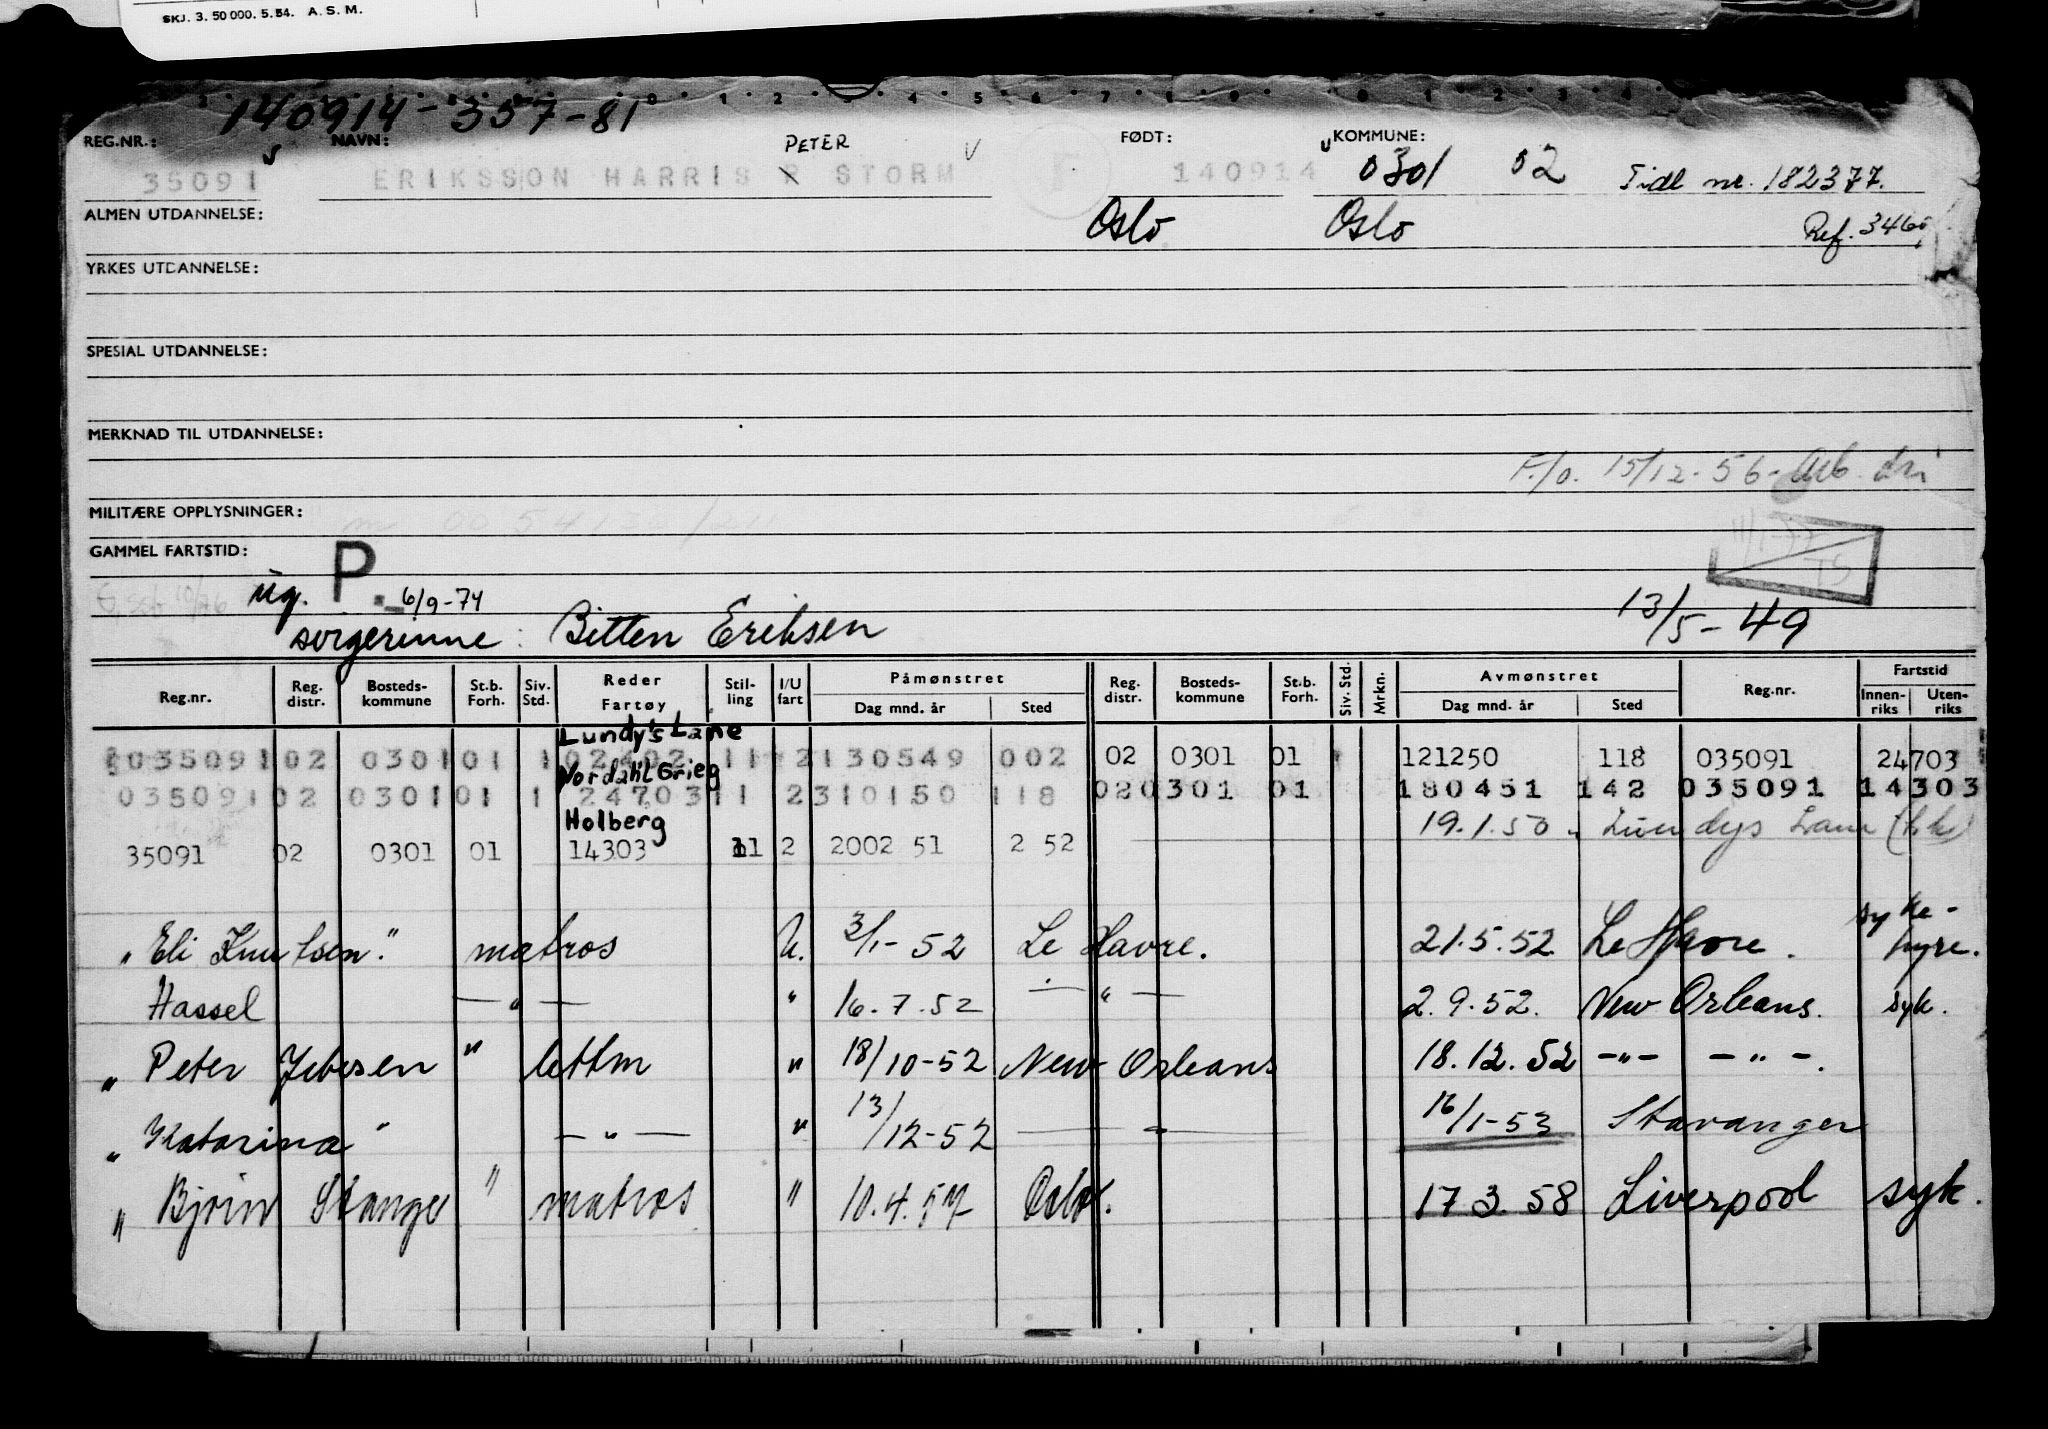 SKJ. 3. 50 000. 5.54. A. S. M.
140914-357-81
REG.NR.: NAVN: PETER FØDT: KOMMUNE:
35091 ERIKSSON HARRIS P STORM 140914 0301 02 Tidl nr. 182377.
ALMEN UTDANNELSE: Oslo Oslo Ref. 3460
YRKES UTDANNELSE:
SPESIAL UTDANNELSE:
MERKNAD TIL UTDANNELSE:
F./o. 15/12-56- Arb. dir
MILITÆRE OPPLYSNINGER:
GAMMEL FARTSTID:
ug. P. 6/9-74
sørgerinne: Bitten Eriksen 13/5-49
Reg.nr. Reg. distr. Bosteds-kommune St.b. Forh. Siv. Std. Reder Fartøy Stil-ling I/U fart Påmønstret Dag mnd. år Sted Reg. distr. Bosteds-kommune St.b. Forh. Siv. Std. Mrkn. Avmønstret Dag mnd. år Sted Reg.nr. Fartstid Innen-riks Uten-riks
Lundy's Lane
035091 02 0301 01 1 02402 11 2 130549 002 02 0301 01 121250 118 035091 24703
Nordahl Grieg
035091 02 0301 01 1 24703 11 2 310150 118 02 0301 01 180451 142 035091 14303
Holberg 19.1.50 Lundys Lane
35091 02 0301 01 14303 11 2 2002 51 2 52
"Eli Knutsen" matros U. 3/1-52 Le Havre. 21.5.52 Le Havre. syke-hyre.
Hassel -"- " 16.7.52 -"- 2.9.52. New Orleans. syk.
"Peter Jebsen" lettm " 18/10-52 New Orleans 18.12.52 -"- -"-.
"Katarina" -"- " 13/12-52 -"- 16/1-53 Stavanger
"Bjørn Stange" matros " 10.4.57 Oslo. 17 3.58 Liverpool syk.